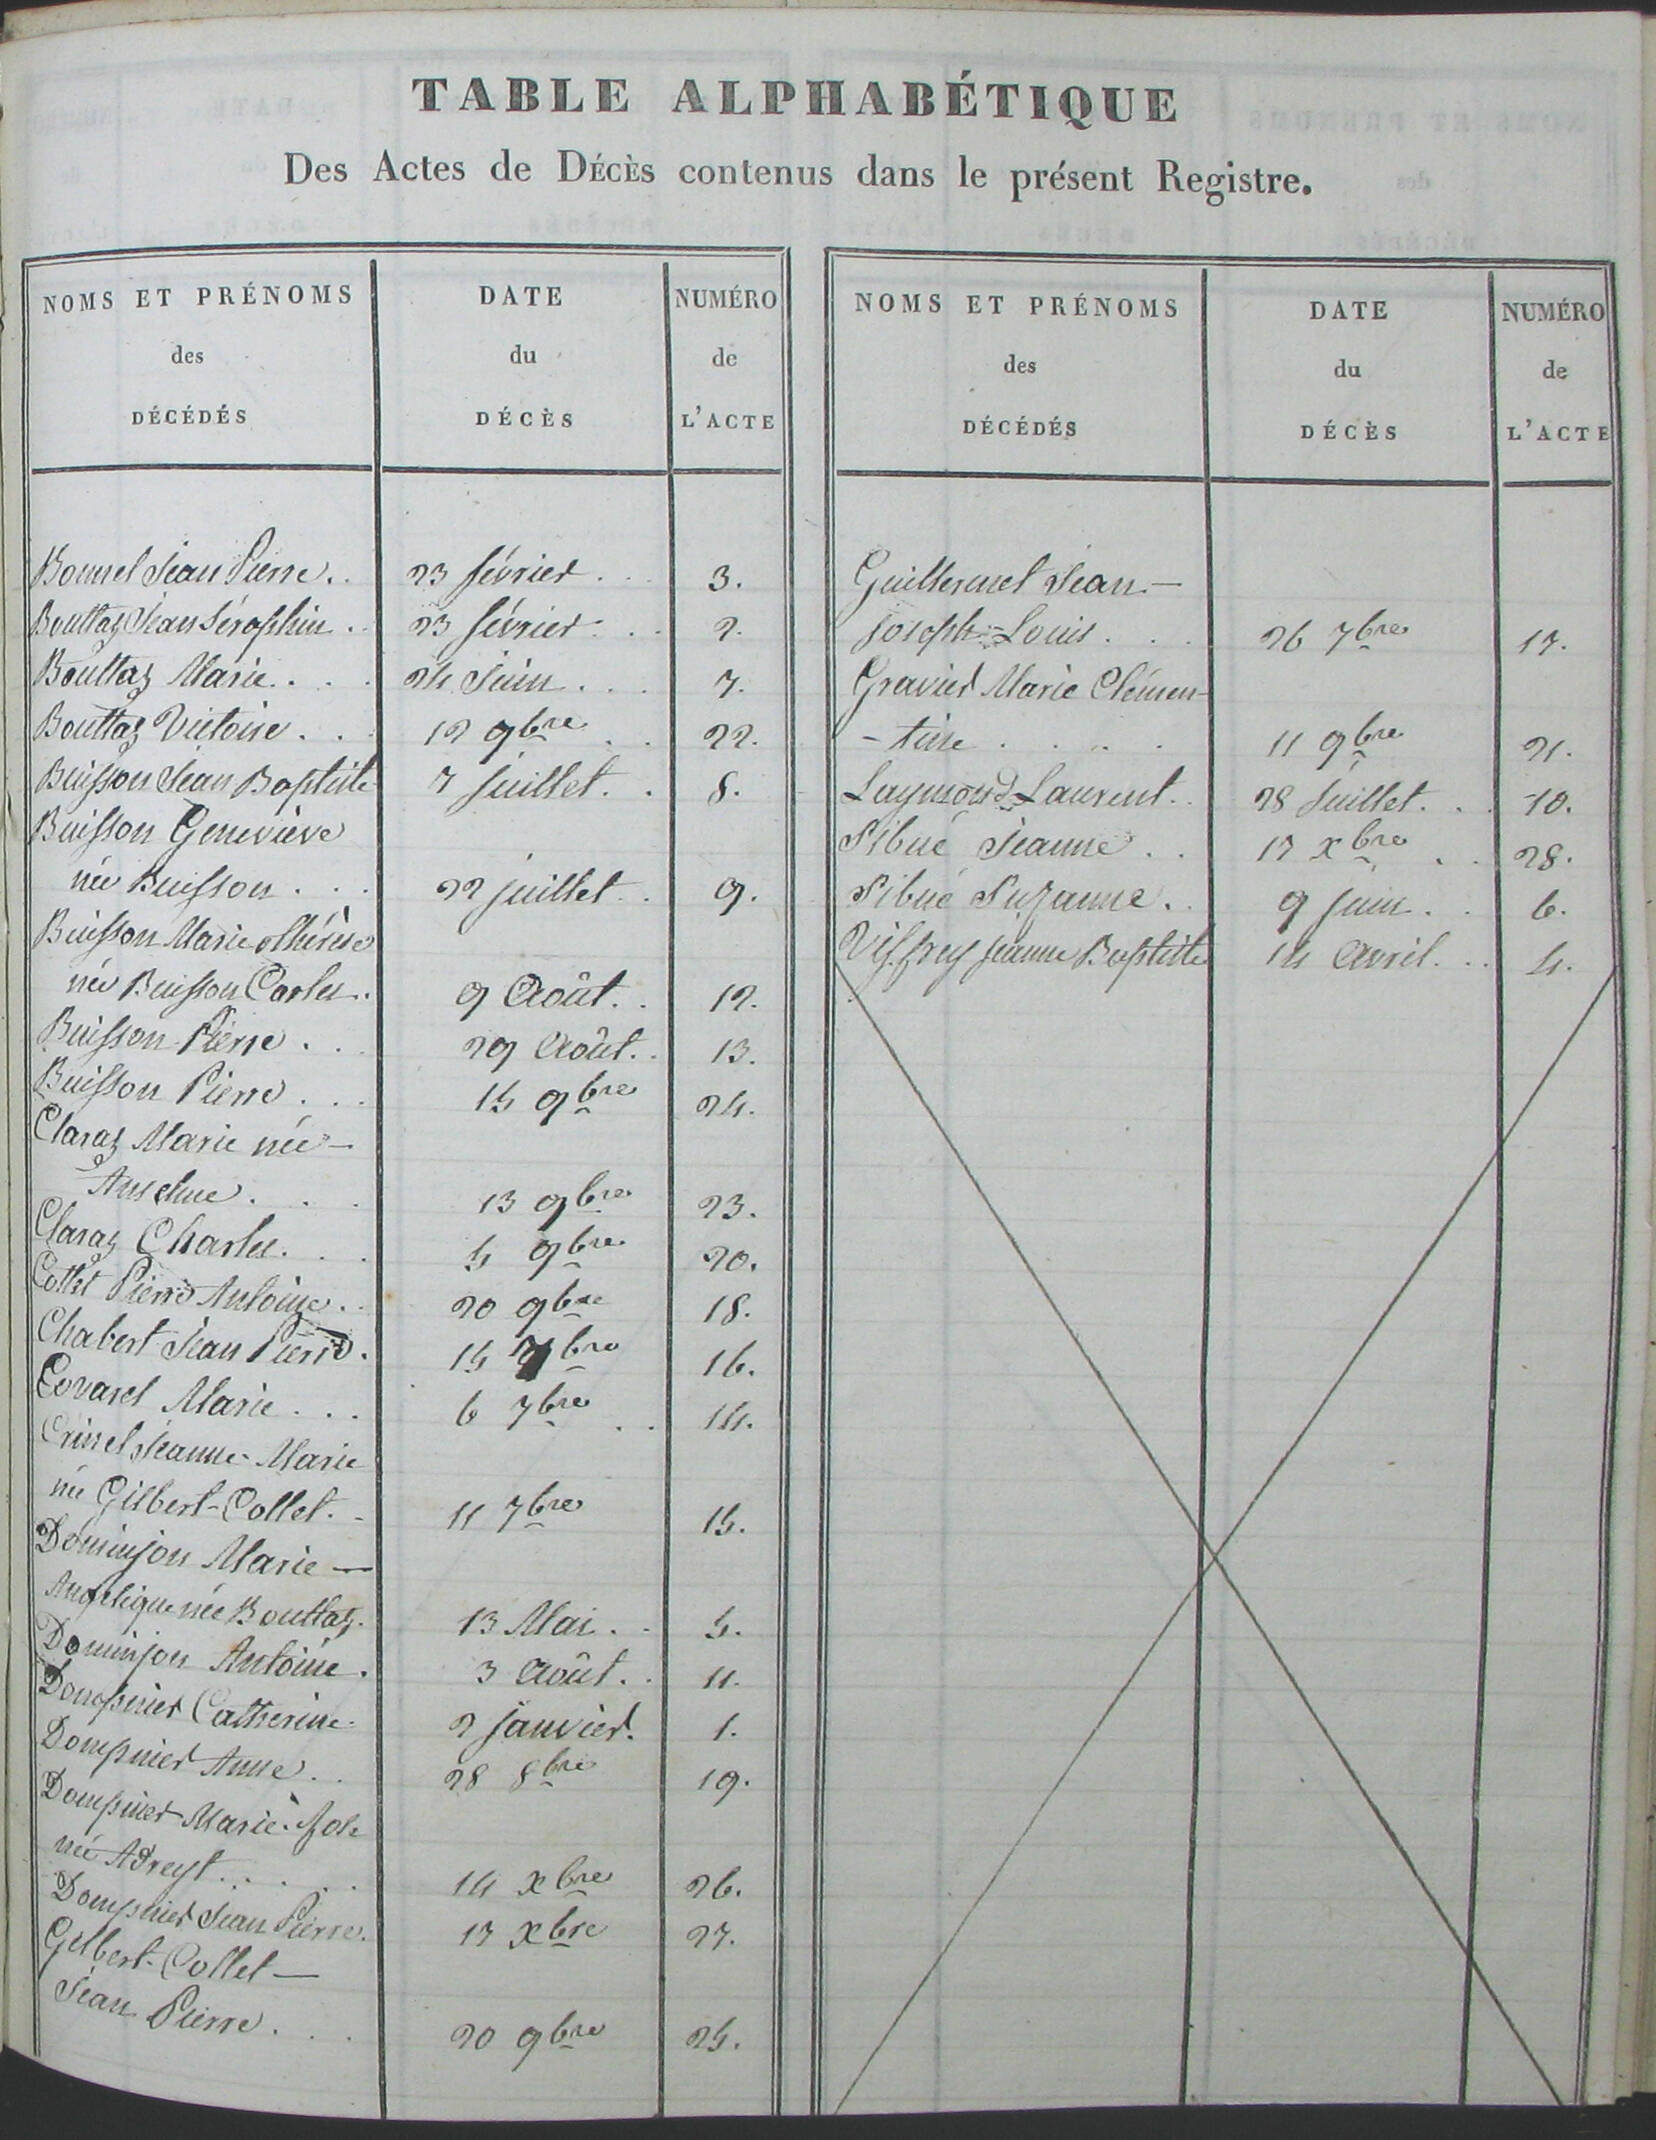 TABLE ALPHABÉTIQUE
Des Actes de DÉCÈS contenus dans le présent Registre.
NOMS ET PRÉNOMS des DÉCÉDÉS | DATE du DÉCÈS | NUMÉRO de L'ACTE
Bonnel Jean Pierre.. 23 février... 3.
Bouttaz Jean Séraphin.. 23 février... 2.
Bouttaz Marie.... 24 Juin... 7.
Bouttaz Victoire... 12 9bre.. 22.
Buisson Jean Baptiste 7 Juillet.. 8.
Buisson Geneviève
née Buisson... 22 juillet.. 9.
Buisson Marie Thérèse
née Buisson Carles.. 9 Août.. 12.
Buisson Pierre... 29 Août.. 13.
Buisson Pierre... 15 9bre 24.
Claraz Marie née —
Anselme... 13 9bre 23.
Claraz Charles... 5 9bre 20.
Collet Pierre Antoine.. 20 9bre 18.
Chabert Jean Pierre. 15 7bre 16.
Covarel Marie... 6 7bre.. 14.
Crinel Jeanne-Marie
née Gilbert-Collet.. 11 7bre 15.
Dominjon Marie —
Angélique née Bouttaz. 13 Mai.. 5.
Dominjon Antoine. 3 Août.. 11.
Dompnier Catherine. 2 janvier. 1.
Dompnier Anne.. 28 8bre 19.
Dompnier Marie
née Adreyt..... 14 xbre 26.
Dompnier Jean Pierre. 17 xbre 27.
Gilbert-Collet —
Jean Pierre... 20 9bre 25.
NOMS ET PRÉNOMS des DÉCÉDÉS | DATE du DÉCÈS | NUMÉRO de L'ACTE
Guillermet Jean —
Joseph-Louis... 26 7bre 17.
Gravier Marie Clémen-
-tine.... 11 9bre 21.
Laymond Laurent.. 28 Juillet... 10.
Sibué Jeanne.. 17 xbre.. 28.
Sibué Suzanne.. 9 juin.. 6.
Viffrey Jeanne Baptiste 14 Avril... 4.